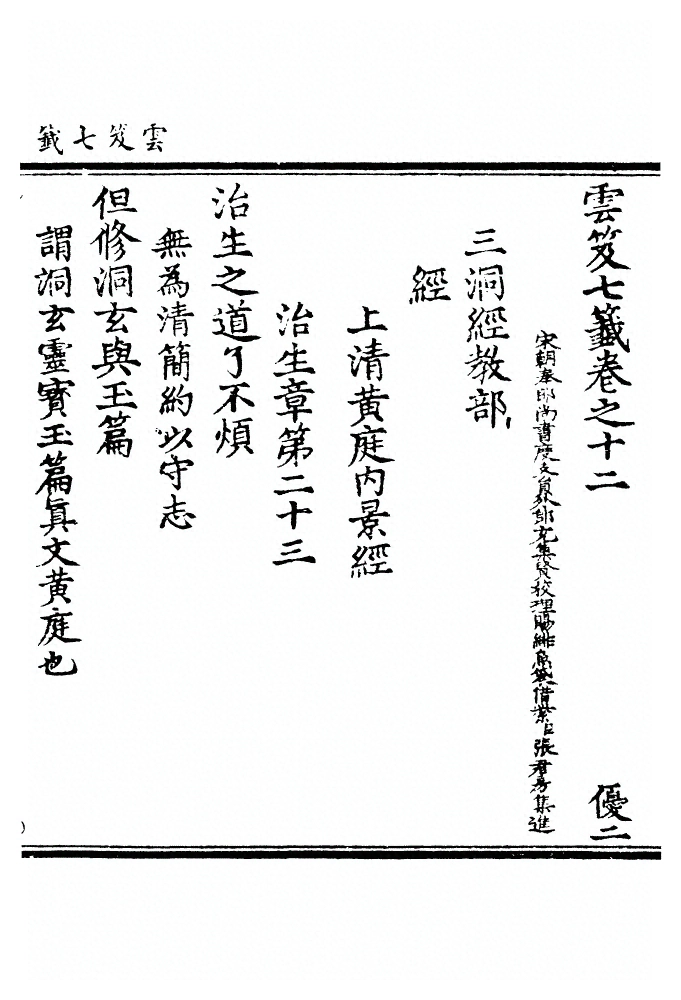 雲笈七籤
雲笈七籤卷之十二 優二
宋朝奉郎尚書度支員外郎充集賢校理賜緋魚袋借紫臣張君房集進
三洞經教部
經
上清黃庭內景經
治生章第二十三
治生之道了不煩
無為清簡約以守志
但修洞玄與玉篇
謂洞玄靈寶玉篇真文黃庭也